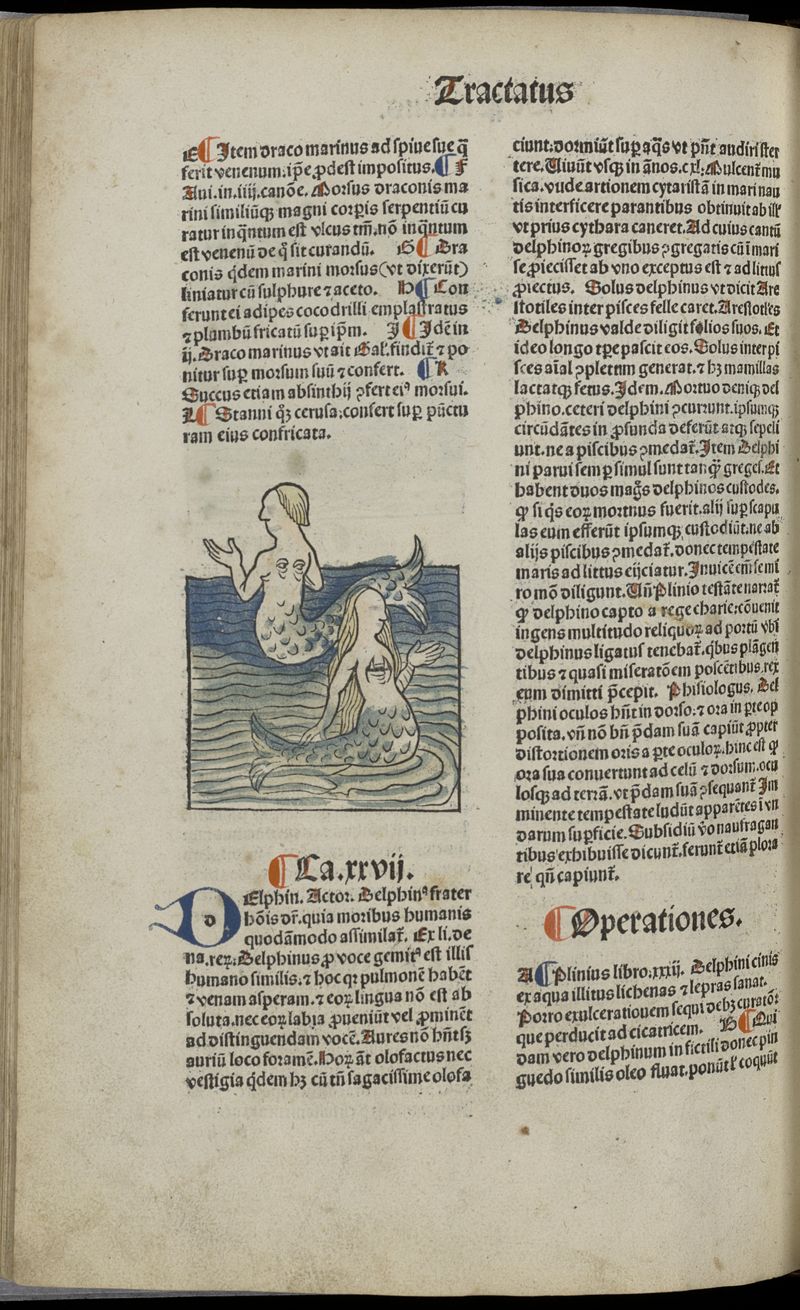 Tractatus
E ¶ Item draco marinus ad spine sue q̄
ferit venenum. ip̄e ꝓdest impositus. ¶ F
Aui. in. iiij. canōe. Morsus draconis ma
rini similiūqꝫ magni corꝑis serpentiū cu
ratur inq̄ntum est vlcus tm̄. nō inq̄ntum
est venenū de q̄ sit curandū. G ¶ Dra
conis q̇dem marini morsus (vt dixerūt)
liniatur cū sulphure ⁊ aceto. H ¶ Con
ferunt ei adipes cocodrilli emplastratus
⁊ plumbū fricatū suꝑ ip̄m. J ¶ Idē in
ij. Draco marinus vt ait Gal. findit̄ ⁊ po
nitur suꝑ morsum suū ⁊ confert. ¶ K
Succus etiam absinthij ꝯfert eiꝰ morsui.
L ¶ Stanni qꝫ cerusa: confert suꝑ pūctu
ram eius confricata.
¶ Ca. xxvij.
DElphin. Actor. Delphinꝰ frater
hoīs dr̄. quia moribus humanis
quodāmodo assimilat̄. Ex li. de
na. reꝝ. Delphinus ꝓ voce gemitꝰ est illis
humano similis. ⁊ hoc qꝛ pulmonē habēt
⁊ venam asperam. ⁊ eoꝝ lingua nō est ab
soluta. nec eoꝝ labia ꝓueniūt vel ꝓminēt
ad distinguendam vocē. Aures nō hn̄t sꝫ
auriū loco foramē. Hoꝝ āt olofactus nec
vestigia q̇dem hꝫ cū tn̄ sagacissime olofa
ciunt. dormiūt suꝑ aq̄s vt pn̄t audiri ster
tere. Viuūt vsqꝫ in ānos. cxl. Mulcent̄ mu
sica. vnde artionem cytaristā in mari nau
tis interficere parantibus obtinuit ab ill'
vt prius cythara caneret. Ad cuius cantū
delphinoꝝ gregibus ꝯgregatis cū ī mari
se proiecisset ab vno exceptus est ⁊ ad littus
ꝓiectus. Solus delphinus vt dicit Are
stotiles inter pisces felle caret. Arestotl'es
Delphinus valde diligit felios suos. Et
ideo longo tꝑe pascit eos. Solus inter pi
sces aīal ꝯpletum generat. ⁊ hꝫ mamillas
lactatqꝫ fetus. Idem. Mortuo deniqꝫ del
phino. ceteri delphini ꝯcurrunt. ipsumqꝫ
circūdātes in ꝓfunda deferūt atqꝫ sepeli
unt. ne a piscibus ꝯmedat̄. Item Delphi
ni parui semꝑ simul sunt tanq̄ʒ greges. Et
habent duos mag̃s delphinos custodes.
qꝙ si q̇s eoꝝ mortuus fuerit. alij suꝑ scapu
las eum efferūt ipsumqꝫ custodiūt. ne ab
alijs piscibus ꝯmedat̄. donec tempestate
maris ad littus eijciatur. Inuicē em̄ semi
ro mō diligunt. Vn̄ Plinio testāte narrat̄
qꝙ delphino capto a rege charie: cōuenit
ingens multitudo reliquoꝝ ad portū vbi
delphinus ligatus tenebat̄. q̇bus plāgen
tibus ⁊ quasi miseratōem poscētibus. rex
eum dimitti p̄cepit. Phisiologus. Del
phini oculos hn̄t in dorso: ⁊ ora in ꝑte op
posita. vn̄ nō bn̄ p̄dam suā capiūt ꝓpter
distortionem oris a ꝑte oculoꝝ. hinc est qꝙ
ora sua conuertunt ad celū ⁊ dorsum. ocu
losqꝫ ad terrā. vt p̄dam suā ꝯsequant̄ Im
minente tempestate ludūt apparētes i vn
darum suꝑficie. Subsidiū ṽo naufragan
tibus exhibuisse dicunt̄. ferunt̄ etiā plora
re qn̄ capiunt̄.
¶ Operationes.
A ¶ Plinius libro. xxxij. Delphini cinis
ex aqua illitus lichenas ⁊ lepras sanat.
Porro exulcerationem sequi debꝫ curatō:
que perducit ad cicatricem. B ¶ Qui
dam vero delphinum in fictili donec pin
guedo similis oleo fluat. ponūt ⁊ coquūt